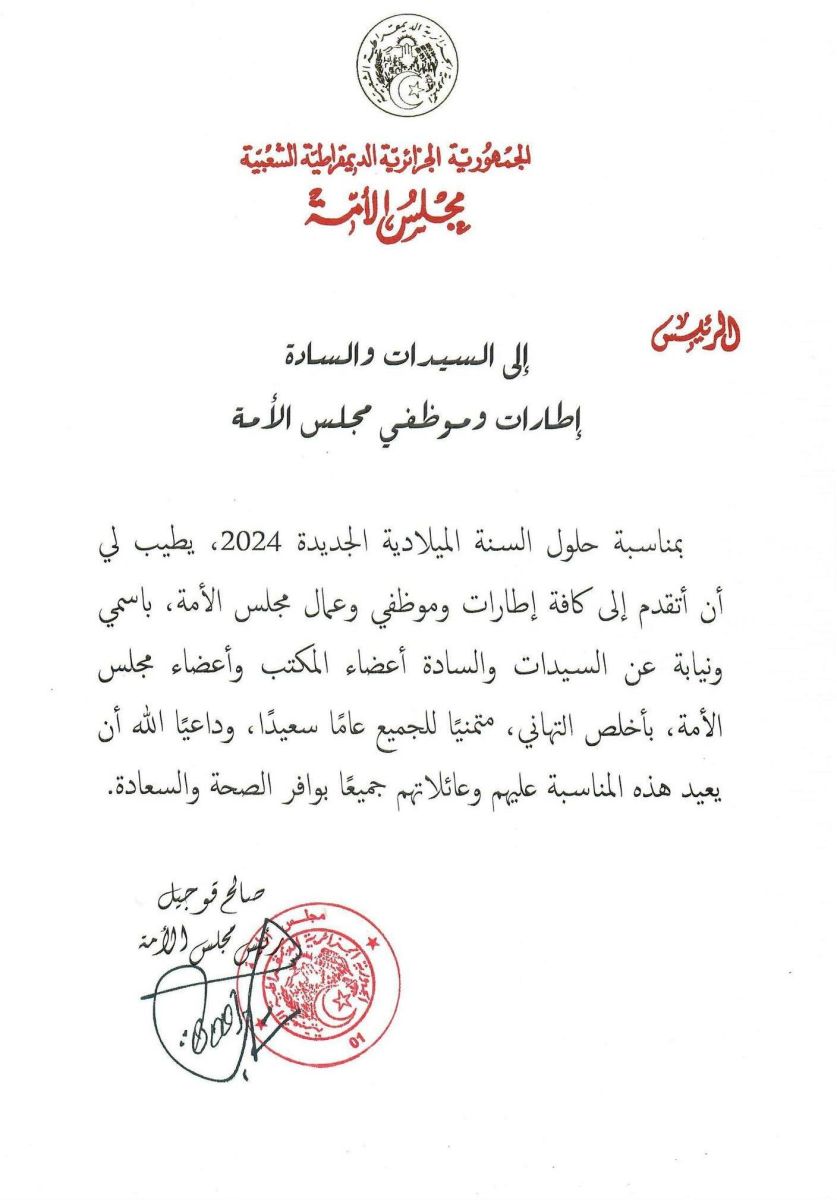 الجمهورية الجزائرية الديمقراطية الشعبية
الجمهوريّة الجزائريّة الديمقراطيّة الشعبيّة
مجلس الأمّة
الرئيس
إلى السيدات والسادة
إطارات وموظفي مجلس الأمة
بمناسبة حلول السنة الميلادية الجديدة 2024، يطيب لي
أن أتقدم إلى كافة إطارات وموظفي وعمال مجلس الأمة، باسمي
ونيابة عن السيدات والسادة أعضاء المكتب وأعضاء مجلس
الأمة، بأخلص التهاني، متمنيًا للجميع عامًا سعيدًا، وداعيًا الله أن
يعيد هذه المناسبة عليهم وعائلاتهم جميعًا بوافر الصحة والسعادة.
صالح قوجيل
رئيس مجلس الأمة
مجلس
الجمهورية الجزائرية
01